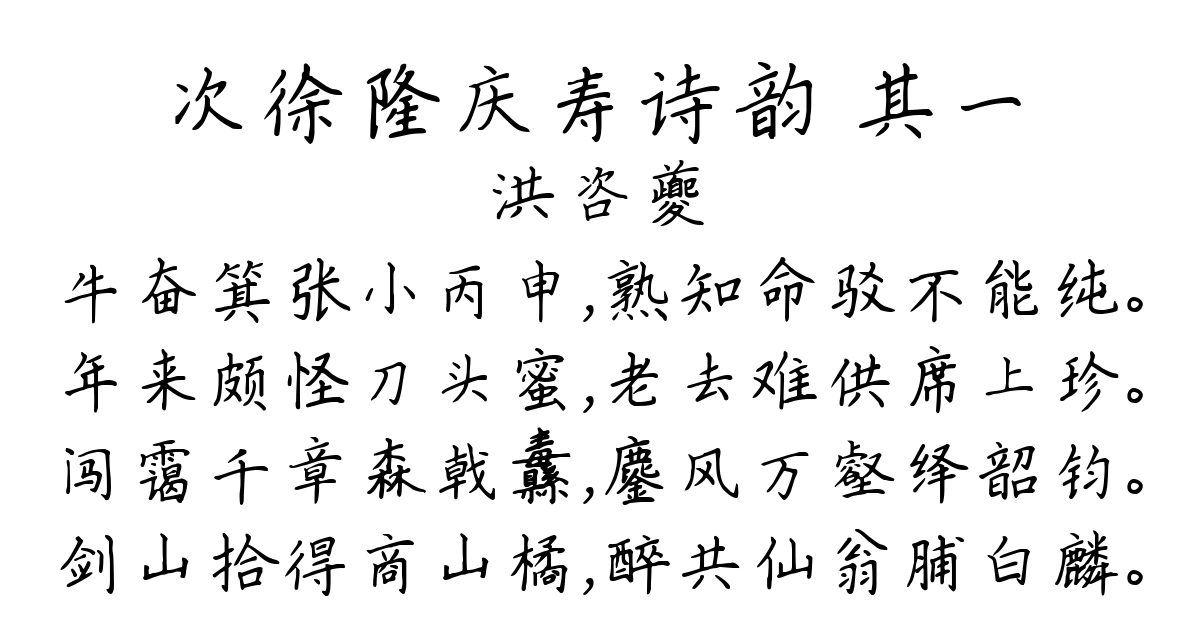 次徐隆庆寿诗韵 其一
洪咨夔
牛奋箕张小丙申,熟知命驳不能纯。
年来颇怪刀头蜜,老去难供席上珍。
闯霭千章森戟纛,鏖风万壑绎韶钧。
剑山拾得商山橘,醉共仙翁脯白麟。